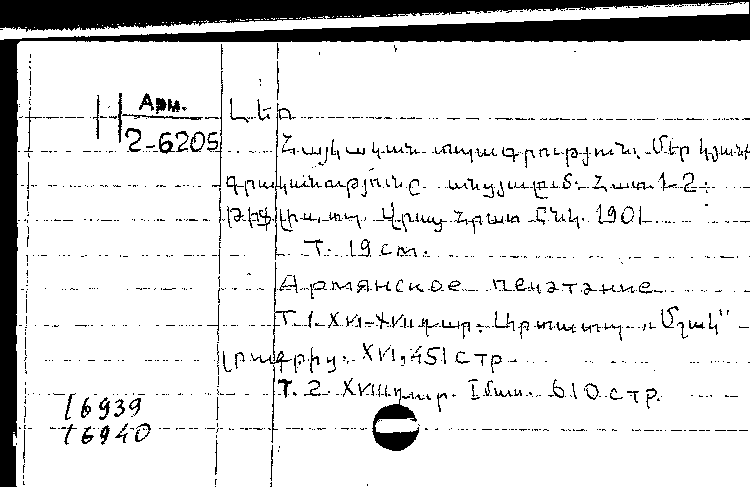 Арм.
2-6205
Լեո
Հայկական տպագրություն. Մեր կյանք
գրականությունը անցյալում. Հատ. 1-2.
Թիֆլիս, տպ. Վրաց Հրատ Ընկ. 1901
Т. 19 см.
Армянское печатание
Т. 1. XVI-XVII դար. Արտատպ. „Մշակ"
լրագրից. XVI, 451 стр
Т. 2. XVIII դար. I մաս. 610 стр.
16939
16940